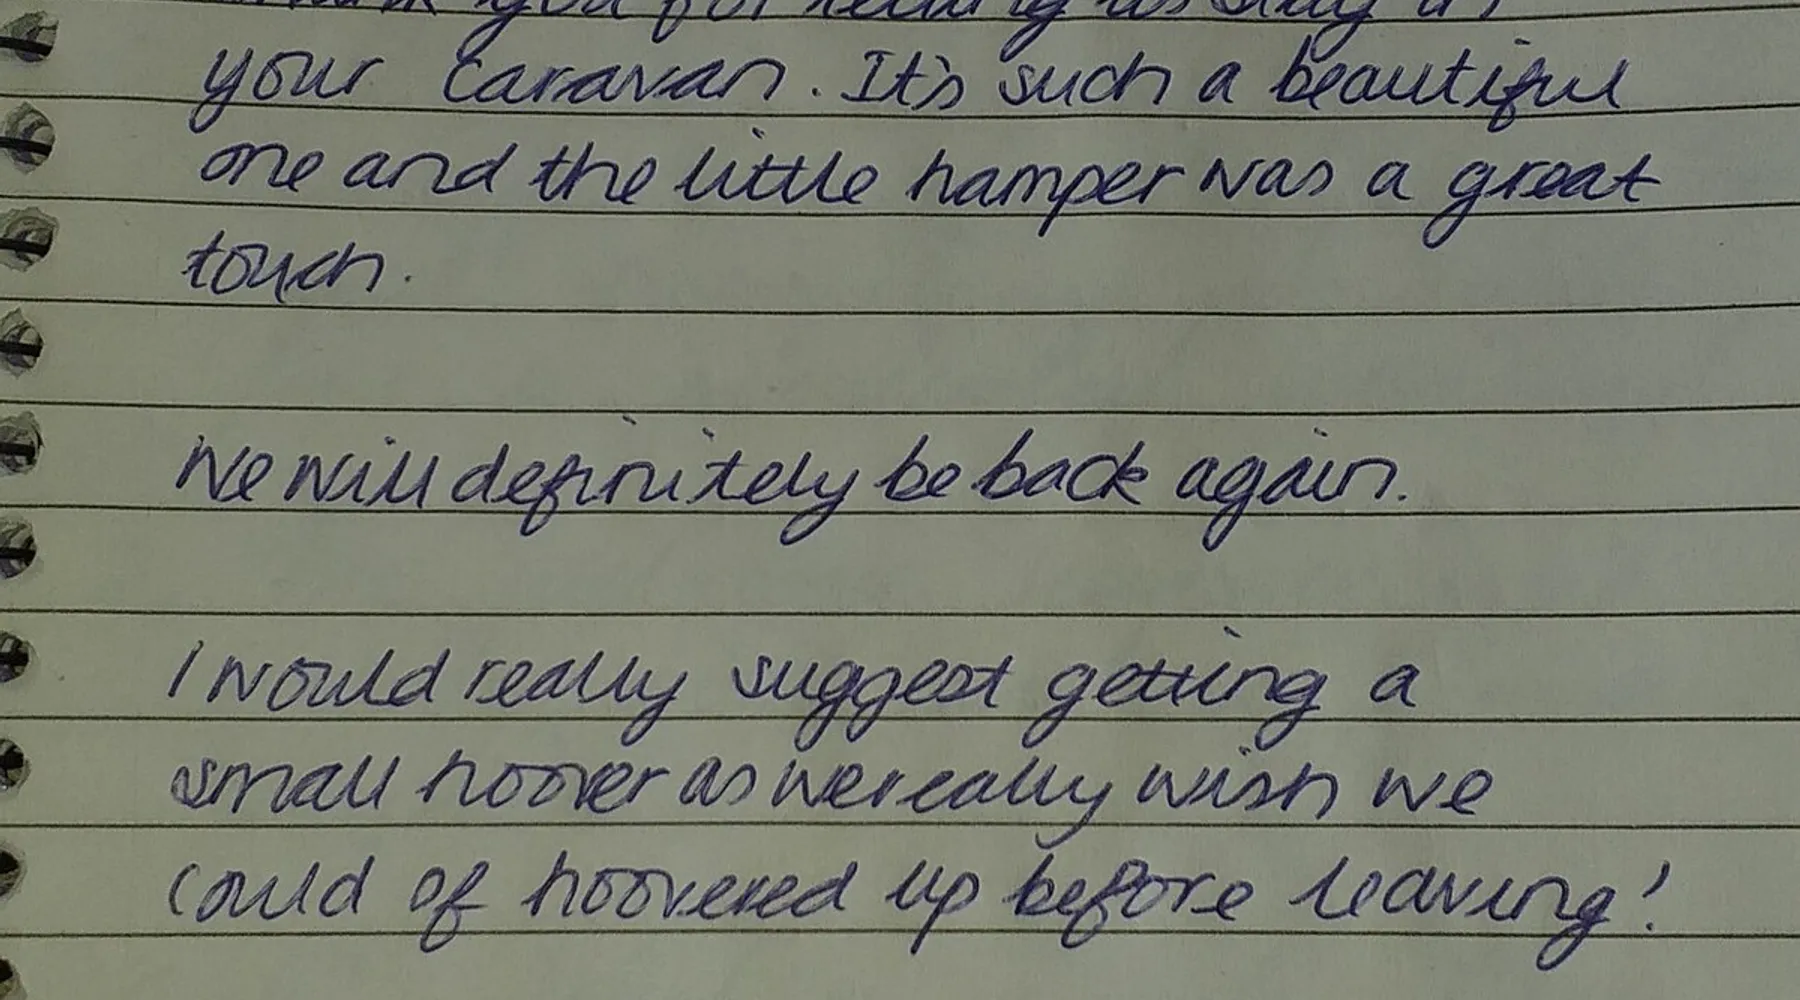 Thank you for letting us stay in
your caravan. It's such a beautiful
one and the little hamper was a great
touch.
We will definitely be back again.
I would really suggest getting a
small hoover as we really wish we
could of hoovered up before leaving!